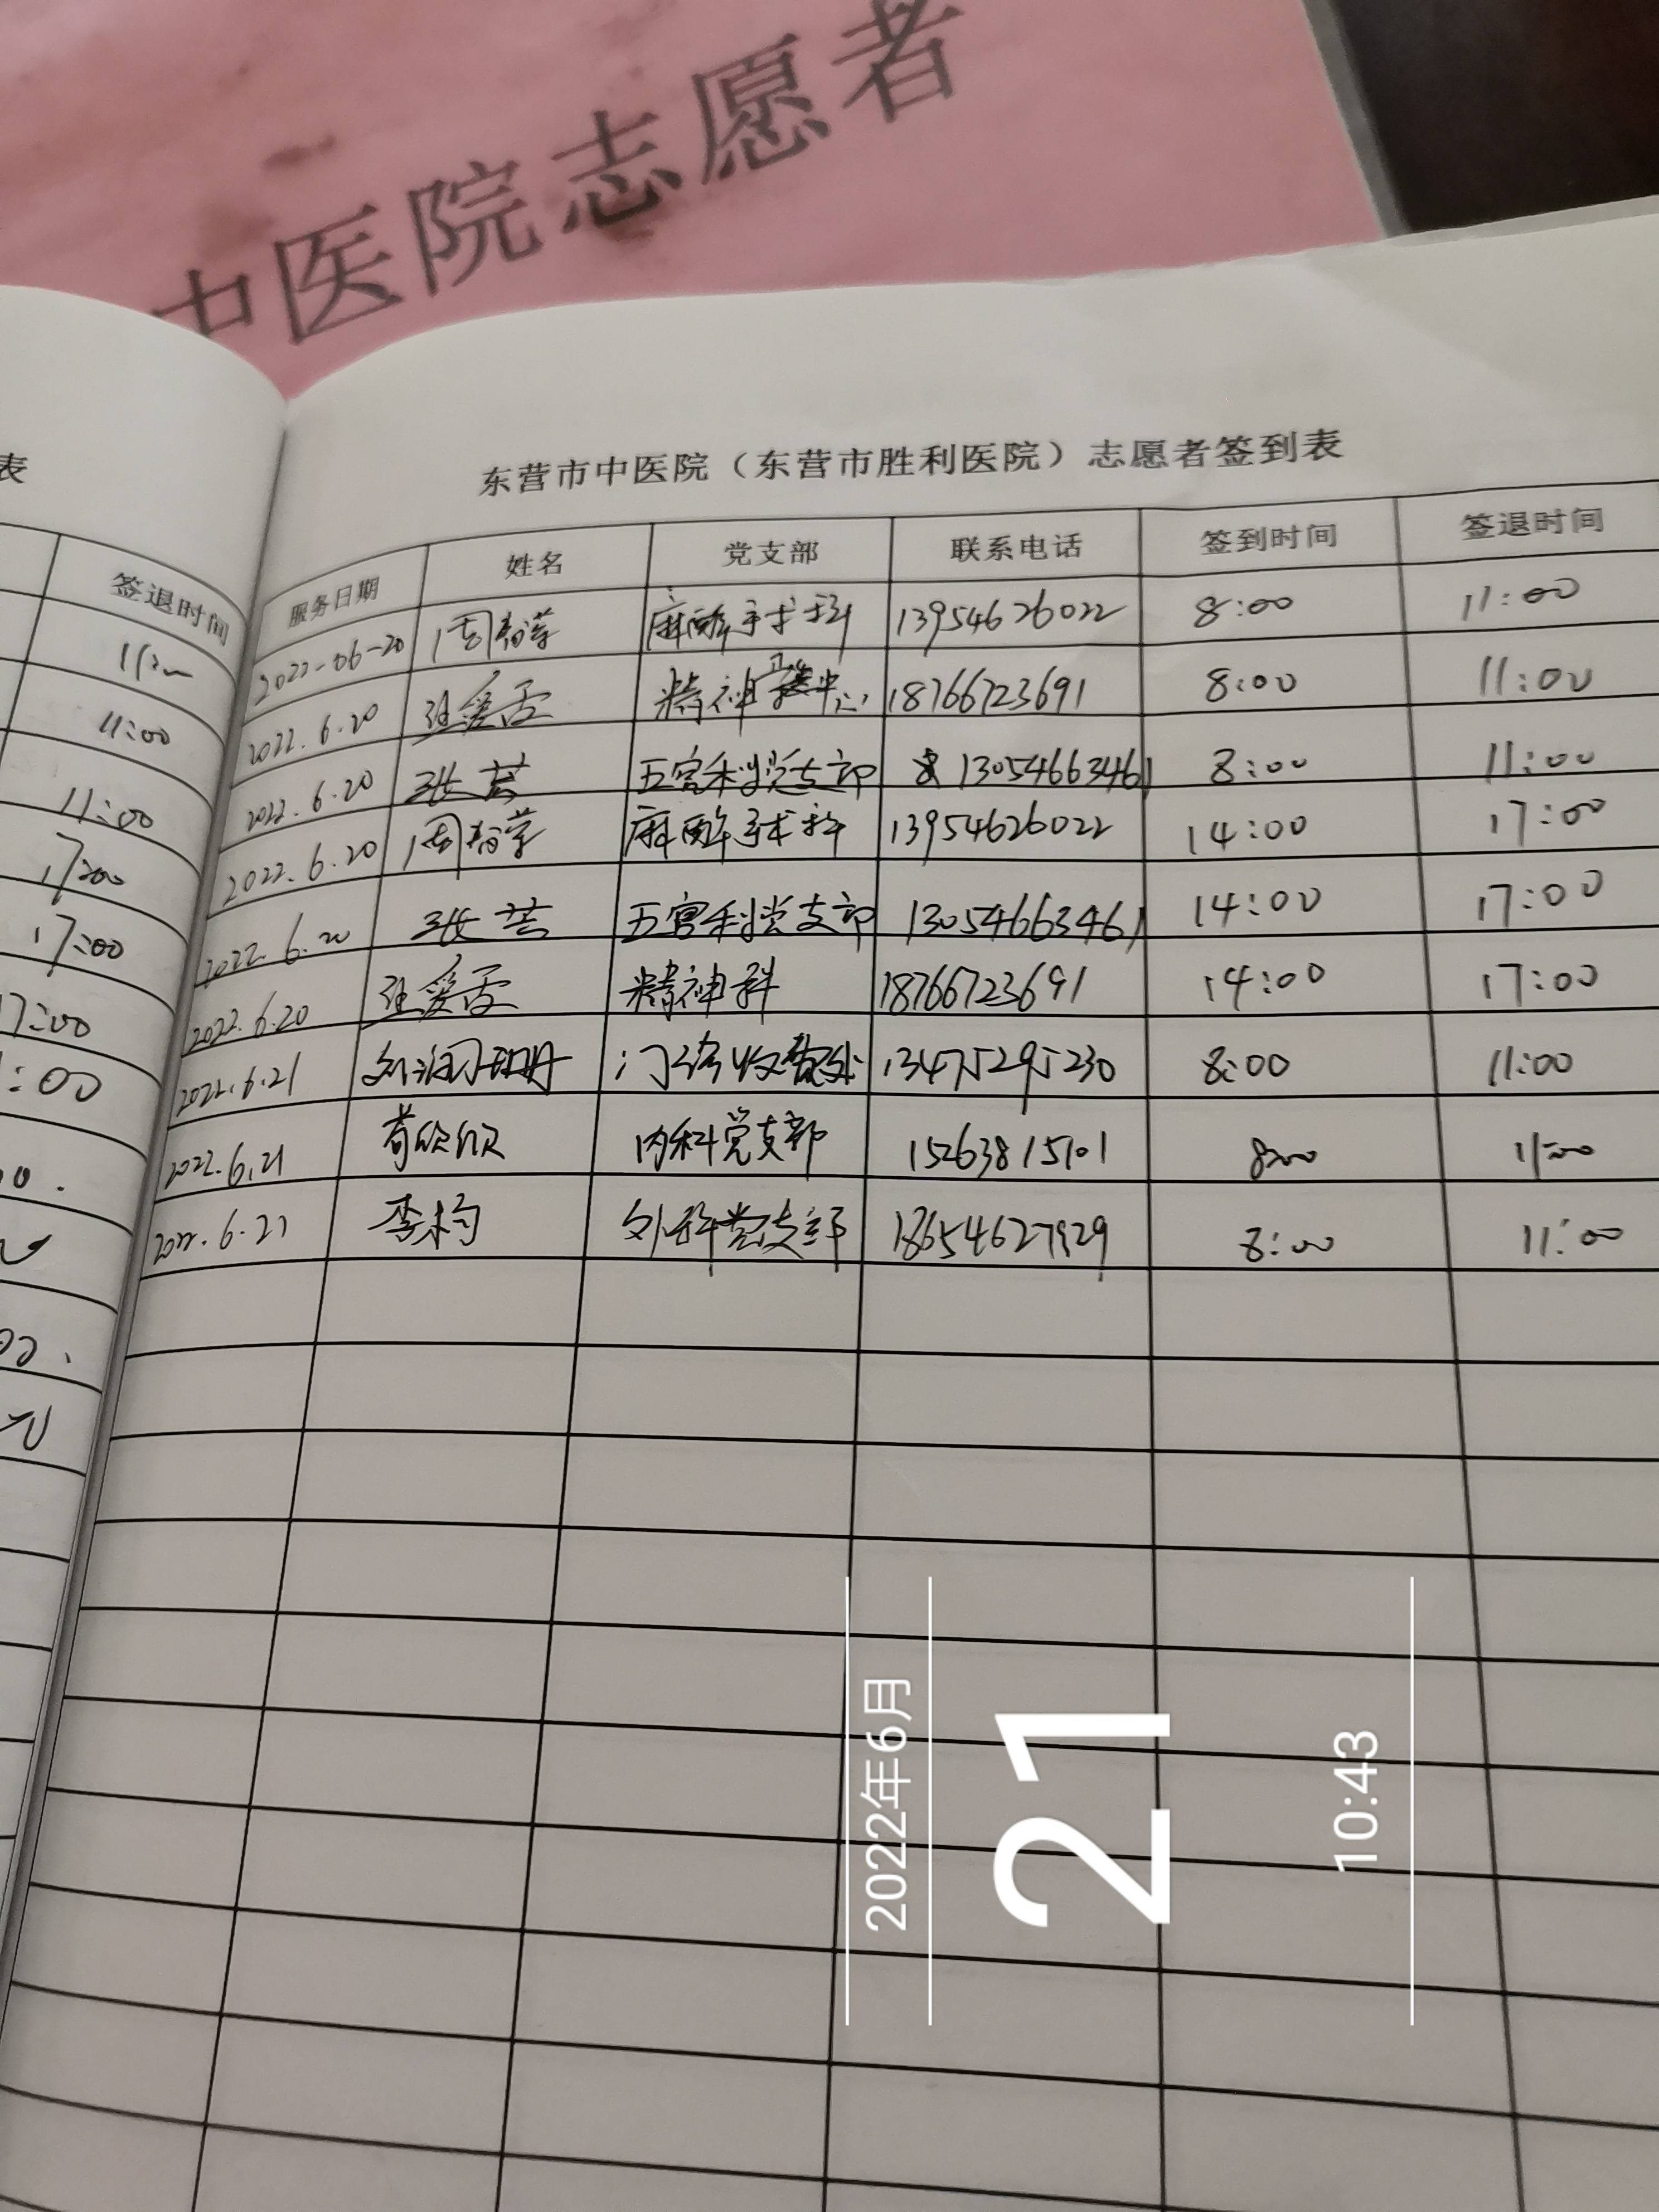 中医院志愿者
表
签退时间
11:00
11:00
11:00
17:00
17:00
17:00
:00
东营市中医院（东营市胜利医院）志愿者签到表
服务日期 姓名 党支部 联系电话 签到时间 签退时间
2022-06-20 周 麻醉手术科 13954626022 8:00 11:00
2022.6.20 精神 中心 18766723691 8:00 11:00
2022.6.20 张芸 五官科党支部 13054663461 8:00 11:00
2022.6.20 周 麻醉手术科 13954626022 14:00 17:00
2022.6.20 张芸 五官科党支部 13054663461 14:00 17:00
2022.6.20 精神科 18766723691 14:00 17:00
2022.6.21 门诊收费处 13475295230 8:00 11:00
2022.6.21 苟欣欣 内科党支部 15263815101 8:00 11:00
2022.6.21 李杓 外科党支部 8:00 11:00
2022年6月
21
10:43